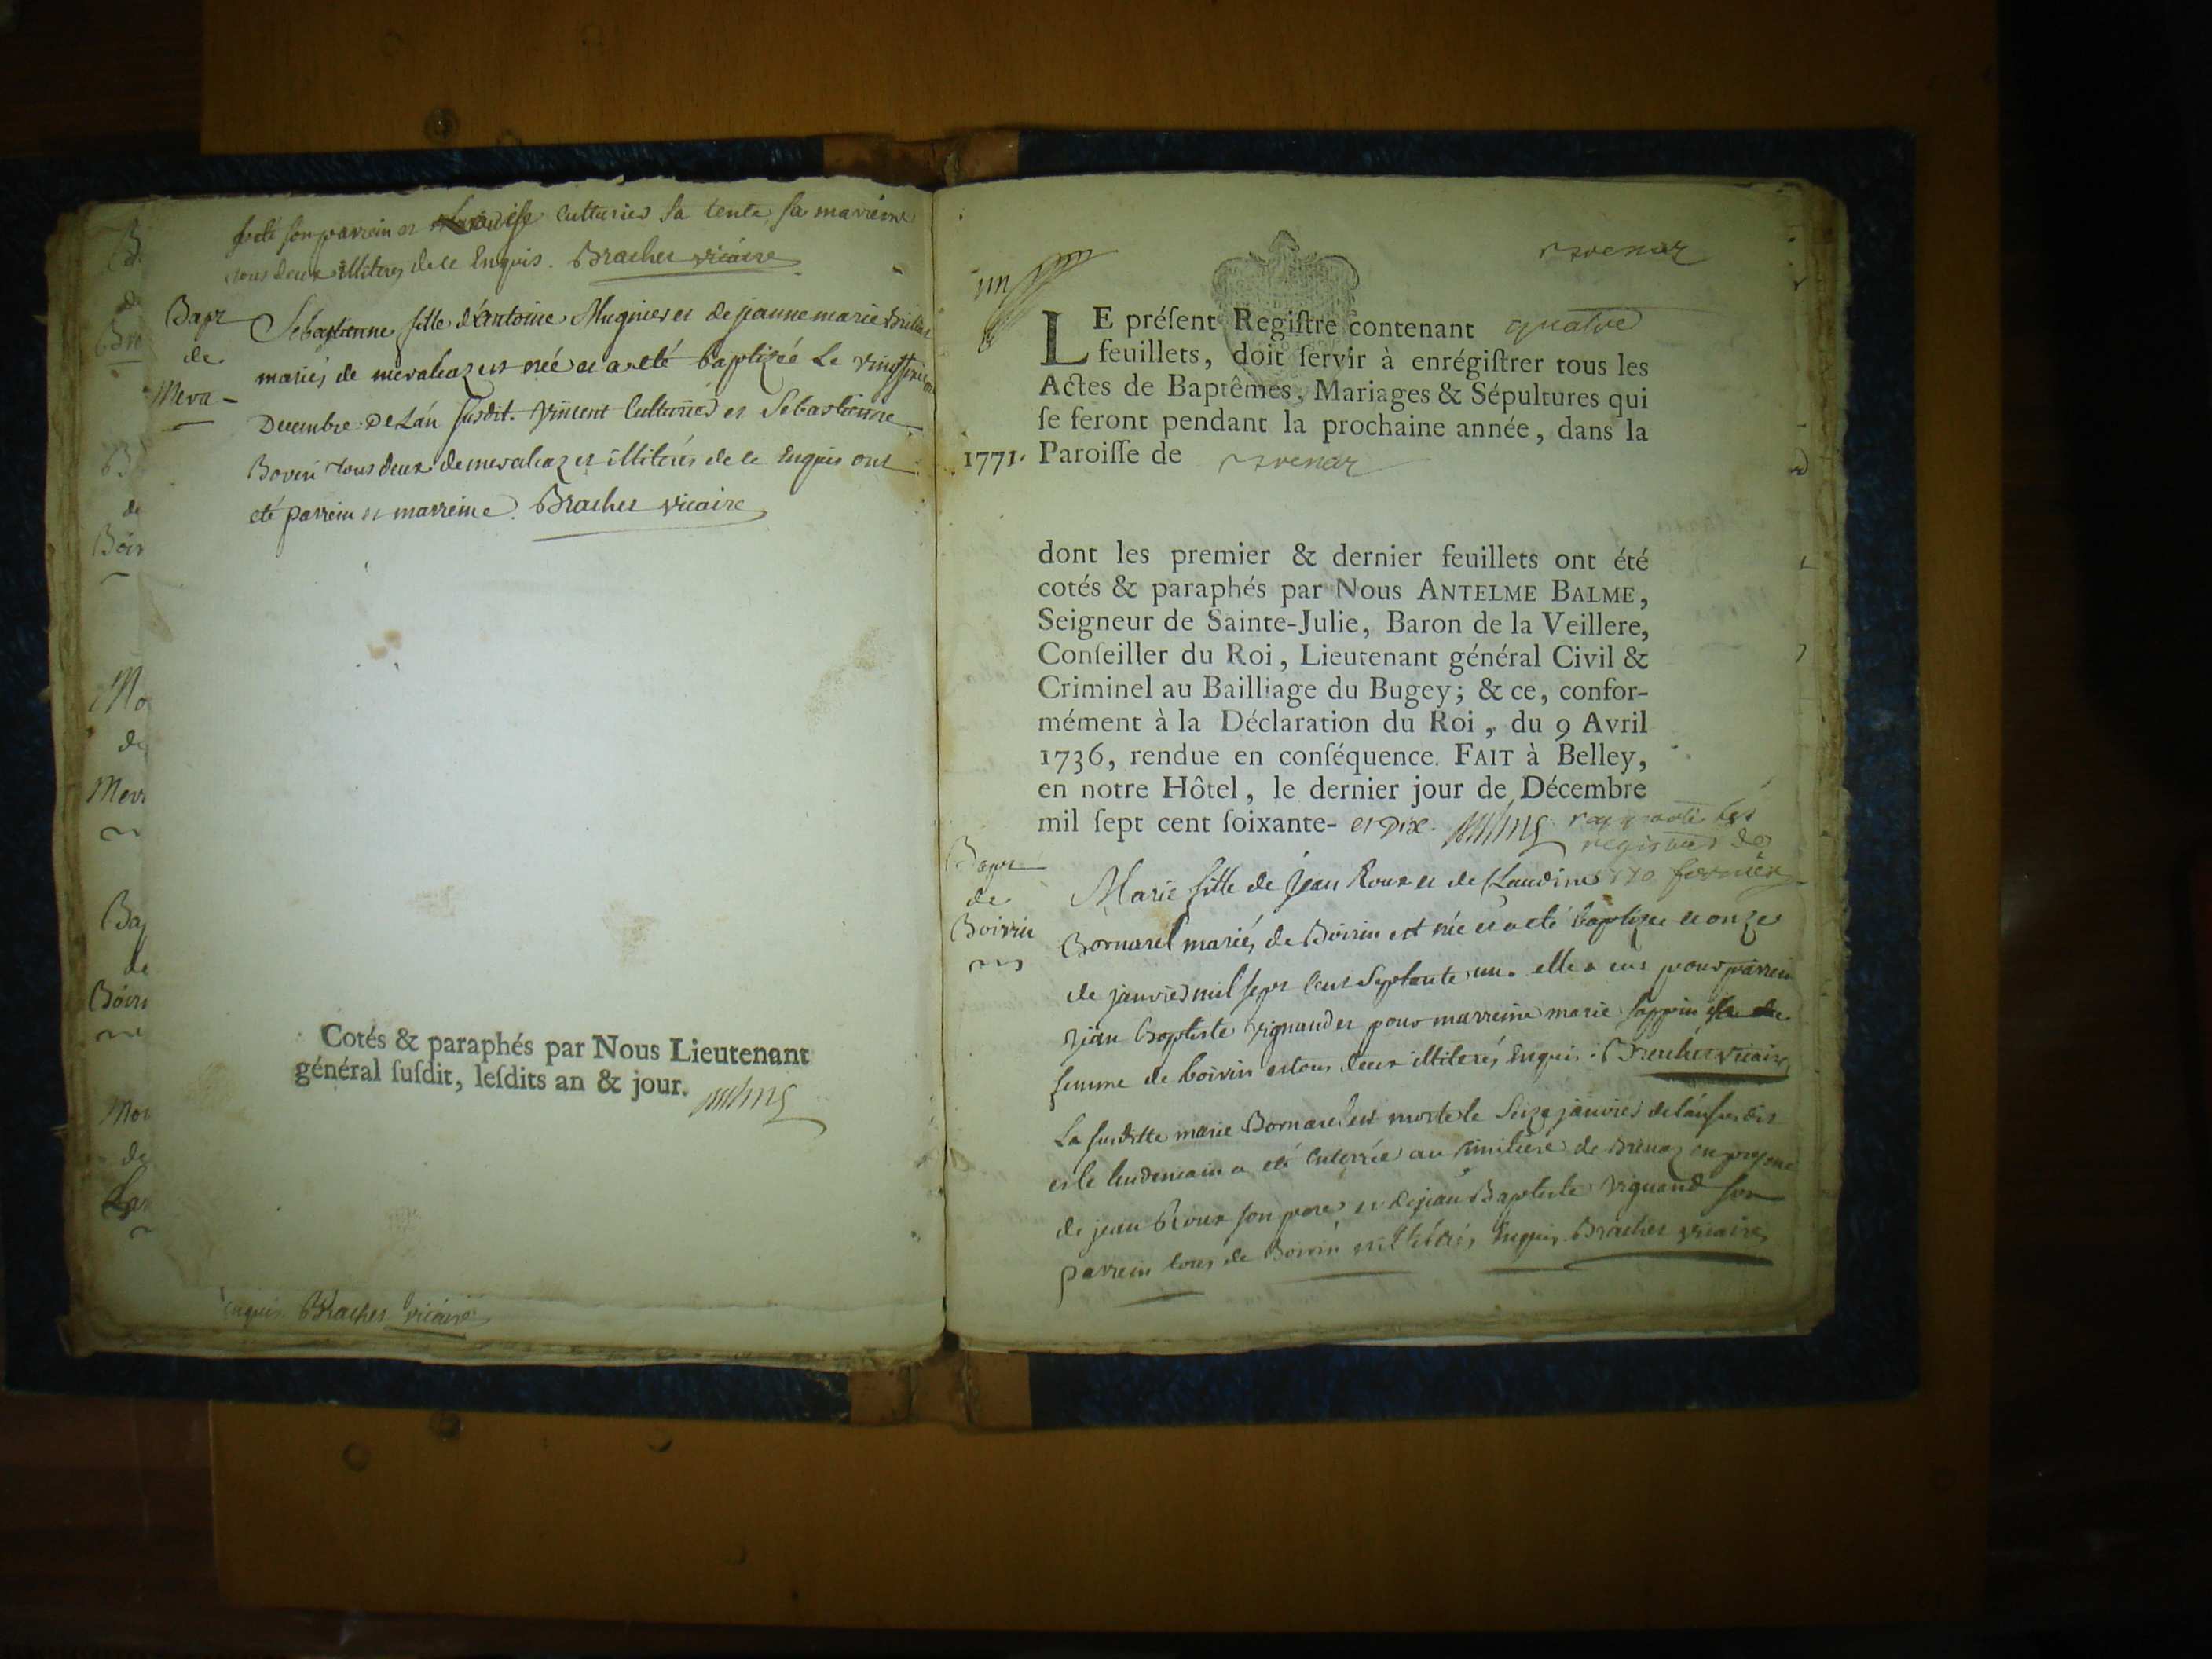 été son parrein et Louise Cutturier sa tente, sa mareine
tous deux illiteres de ce Enquis. Bracher vicaire
Bapt
de
Meva-
Sebastienne fille d'Antoine Mugnier et de jeanne marie
mariés de mevaleaz est née et a eté baptizée Le vingt
Decembre De L'an susdit. Vincent Cutturier et Sebastienne
Bovin tous deux de mevaleaz et illiterés de ce Enquis ont
eté parrein et marreine. Bracher vicaire
Cotés & paraphés par Nous Lieutenant
général suſdit, leſdits an & jour.
enquis. Bracher vicaire
un
Brenaz
LE préſent Regiſtre contenant quatre
feuillets, doit ſervir à enrégiſtrer tous les
Actes de Baptêmes, Mariages & Sépultures qui
ſe feront pendant la prochaine année, dans la
1771. Paroiſſe de Brenaz
dont les premier & dernier feuillets ont été
cotés & paraphés par Nous ANTELME BALME,
Seigneur de Sainte-Julie, Baron de la Veillere,
Conſeiller du Roi, Lieutenant général Civil &
Criminel au Bailliage du Bugey; & ce, confor-
mément à la Déclaration du Roi, du 9 Avril
1736, rendue en conſéquence. FAIT à Belley,
en notre Hôtel, le dernier jour de Décembre
mil ſept cent ſoixante- et Dix.
rapporté les
registres de
Bapt
de
Boirin
Marie fille de Jean Roux et de Claudine
Bornarel mariés de Boirin est née et a eté baptizée le onze
de janvier mil sept cent Septante un. elle a eus pour parrein
jean Baptiste vignand et pour marreine marie sappin
femme de boirin et tous deux illiterés Enquis. Bracher vicaire
La susditte marie Bornarel est morte le Seize janvier de l'an susdit
et le lendemain a eté enterrée au cimitiere de Brenaz en presence
de jean Roux son pere et de jean Baptiste vignand son
parrein tous de Boirin illiterés Enquis Bracher vicaire